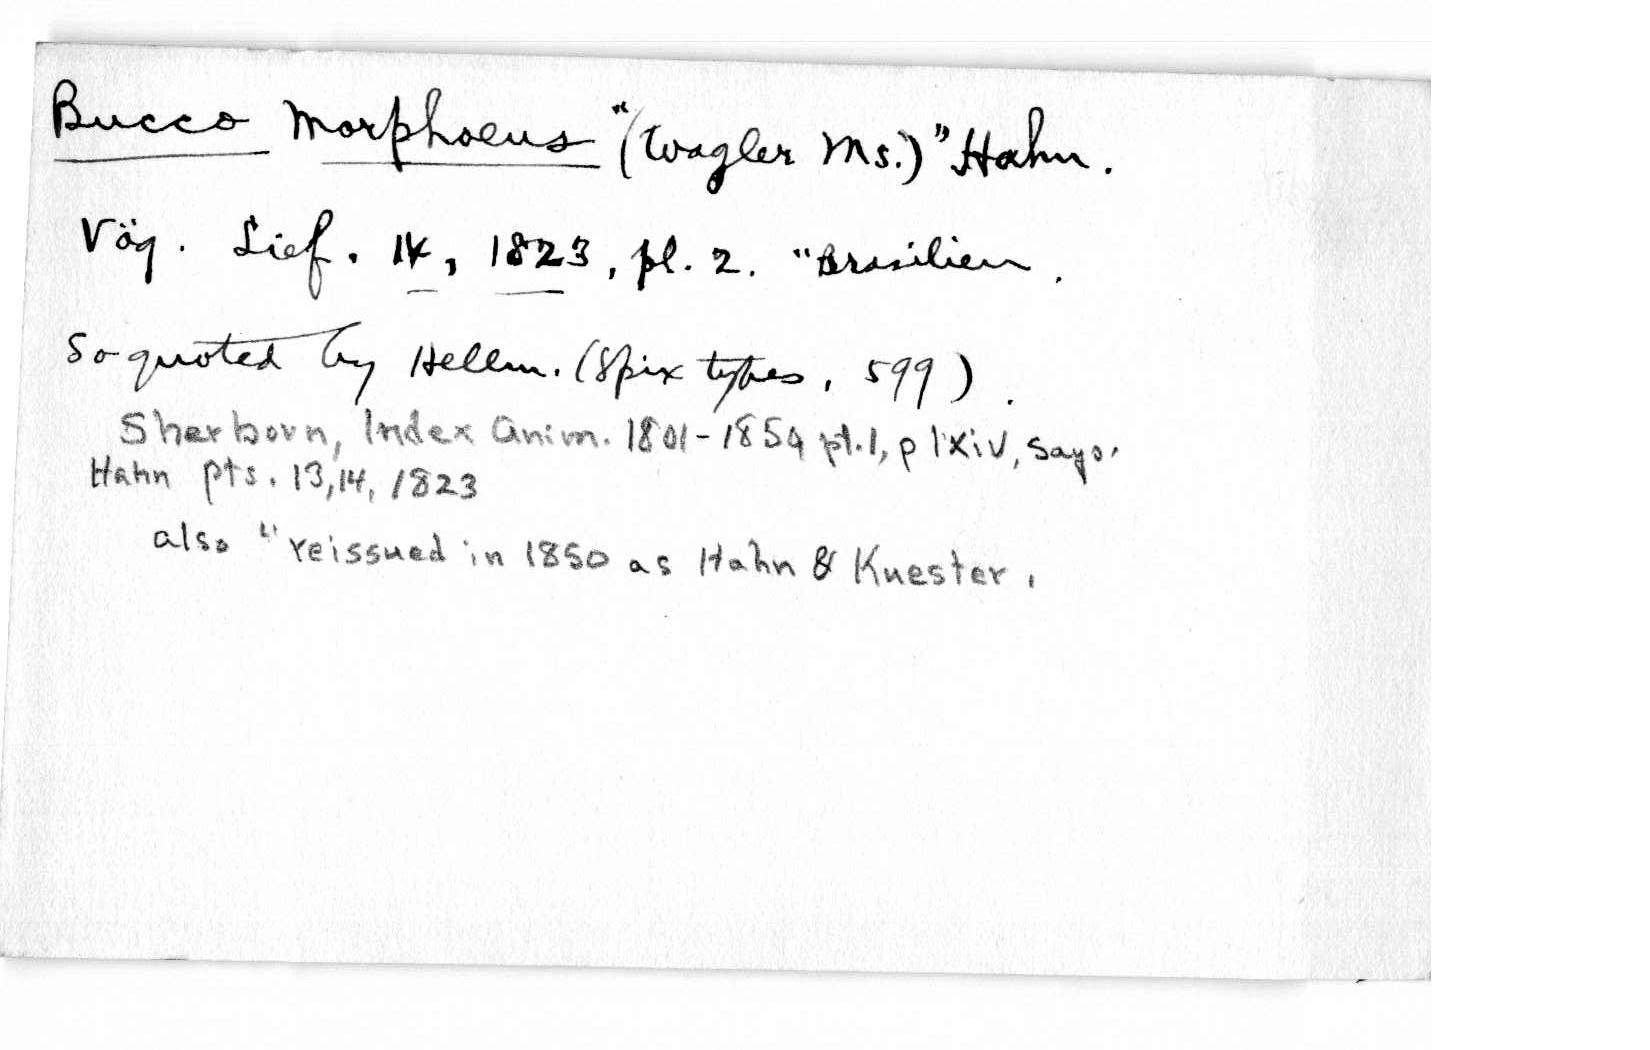 Bucco morphoeus "(Wagler Ms.)" Hahn.
Vög. Lief. 14, 1823, pl. 2. "Brasilien.
So quoted by Hellm. (Spix types, 599).
Sherborn, Index Anim. 1801-1850 pt.1, p lxiv, says.
Hahn pts. 13,14, 1823
also "reissued in 1850 as Hahn & Kuester.